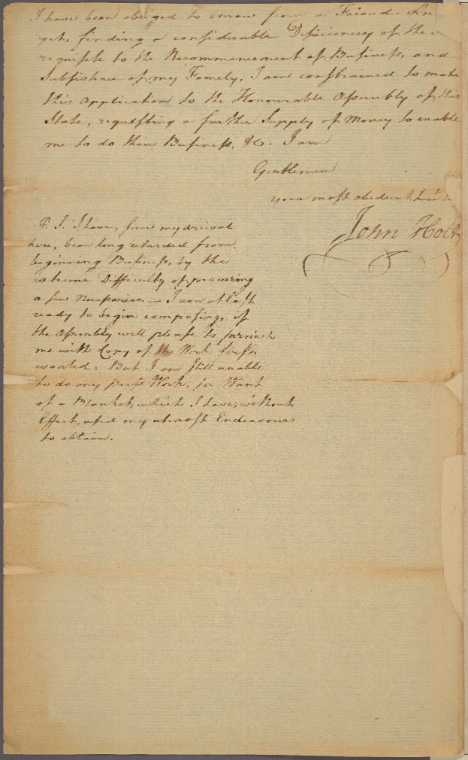 I have been obliged to borrow from a Friend. For
yet, finding a considerable Deficiency of the
requisite to the Recommencement of Business, and
Subsistence of my Family, I am constrained to make
this Application to the Honourable Assembly of this
State, requesting a further Supply of Money to enable
me to do their Business, &c. I am
Gentlemen
your most obedient
John Holt
P. S. I have, since my arrival
here, been long retarded from
beginning Business, by the
extreme Difficulty of procuring
a few Necessaries. I am at last
ready to begin composing, if
the Assembly will please to furnish
me with Copy of the Work first
wanted. But I am still unable
to do any press Work, for Want
of a Blanket, which I have, without
Effect, used my utmost Endeavours
to obtain.